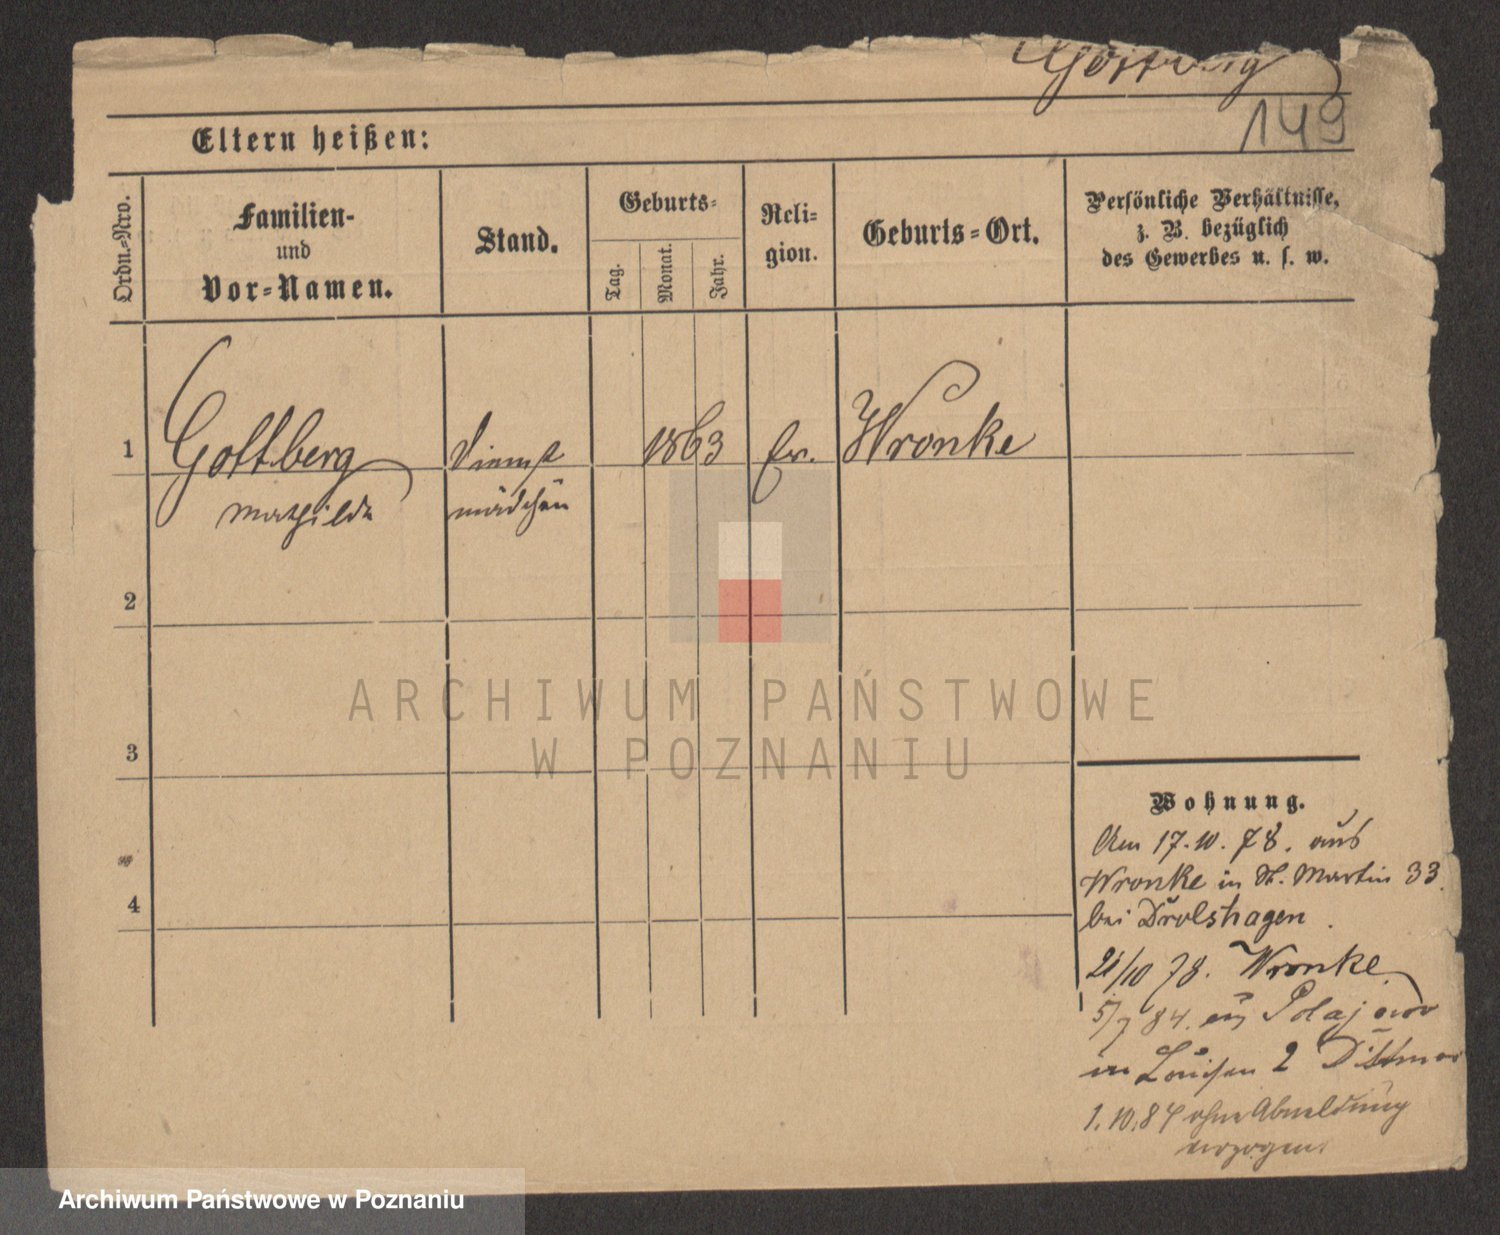 149
Eltern heißen:
Ordn.-Nro.
Familien-
und
Vor-Namen.
Stand.
Geburts-
Tag.
Monat.
Jahr.
Reli-
gion.
Geburts-Ort.
Persönliche Verhältnisse,
z. B. bezüglich
des Gewerbes u. s. w.
1
Gottberg
Mathilde
Dienst
mädchen
1863
ev.
Wronke
2
3
4
Wohnung.
Am 17.10.78. aus
Wronke in St. Martin 33.
bei Drolshagen.
21/10 78. Wronke
5/7 84. aus Polajewo
in Louisen 2 Dittmar
1.10.84 ohne Abmeldung
verzogen.
ARCHIWUM PAŃSTWOWE
W POZNANIU
Archiwum Państwowe w Poznaniu